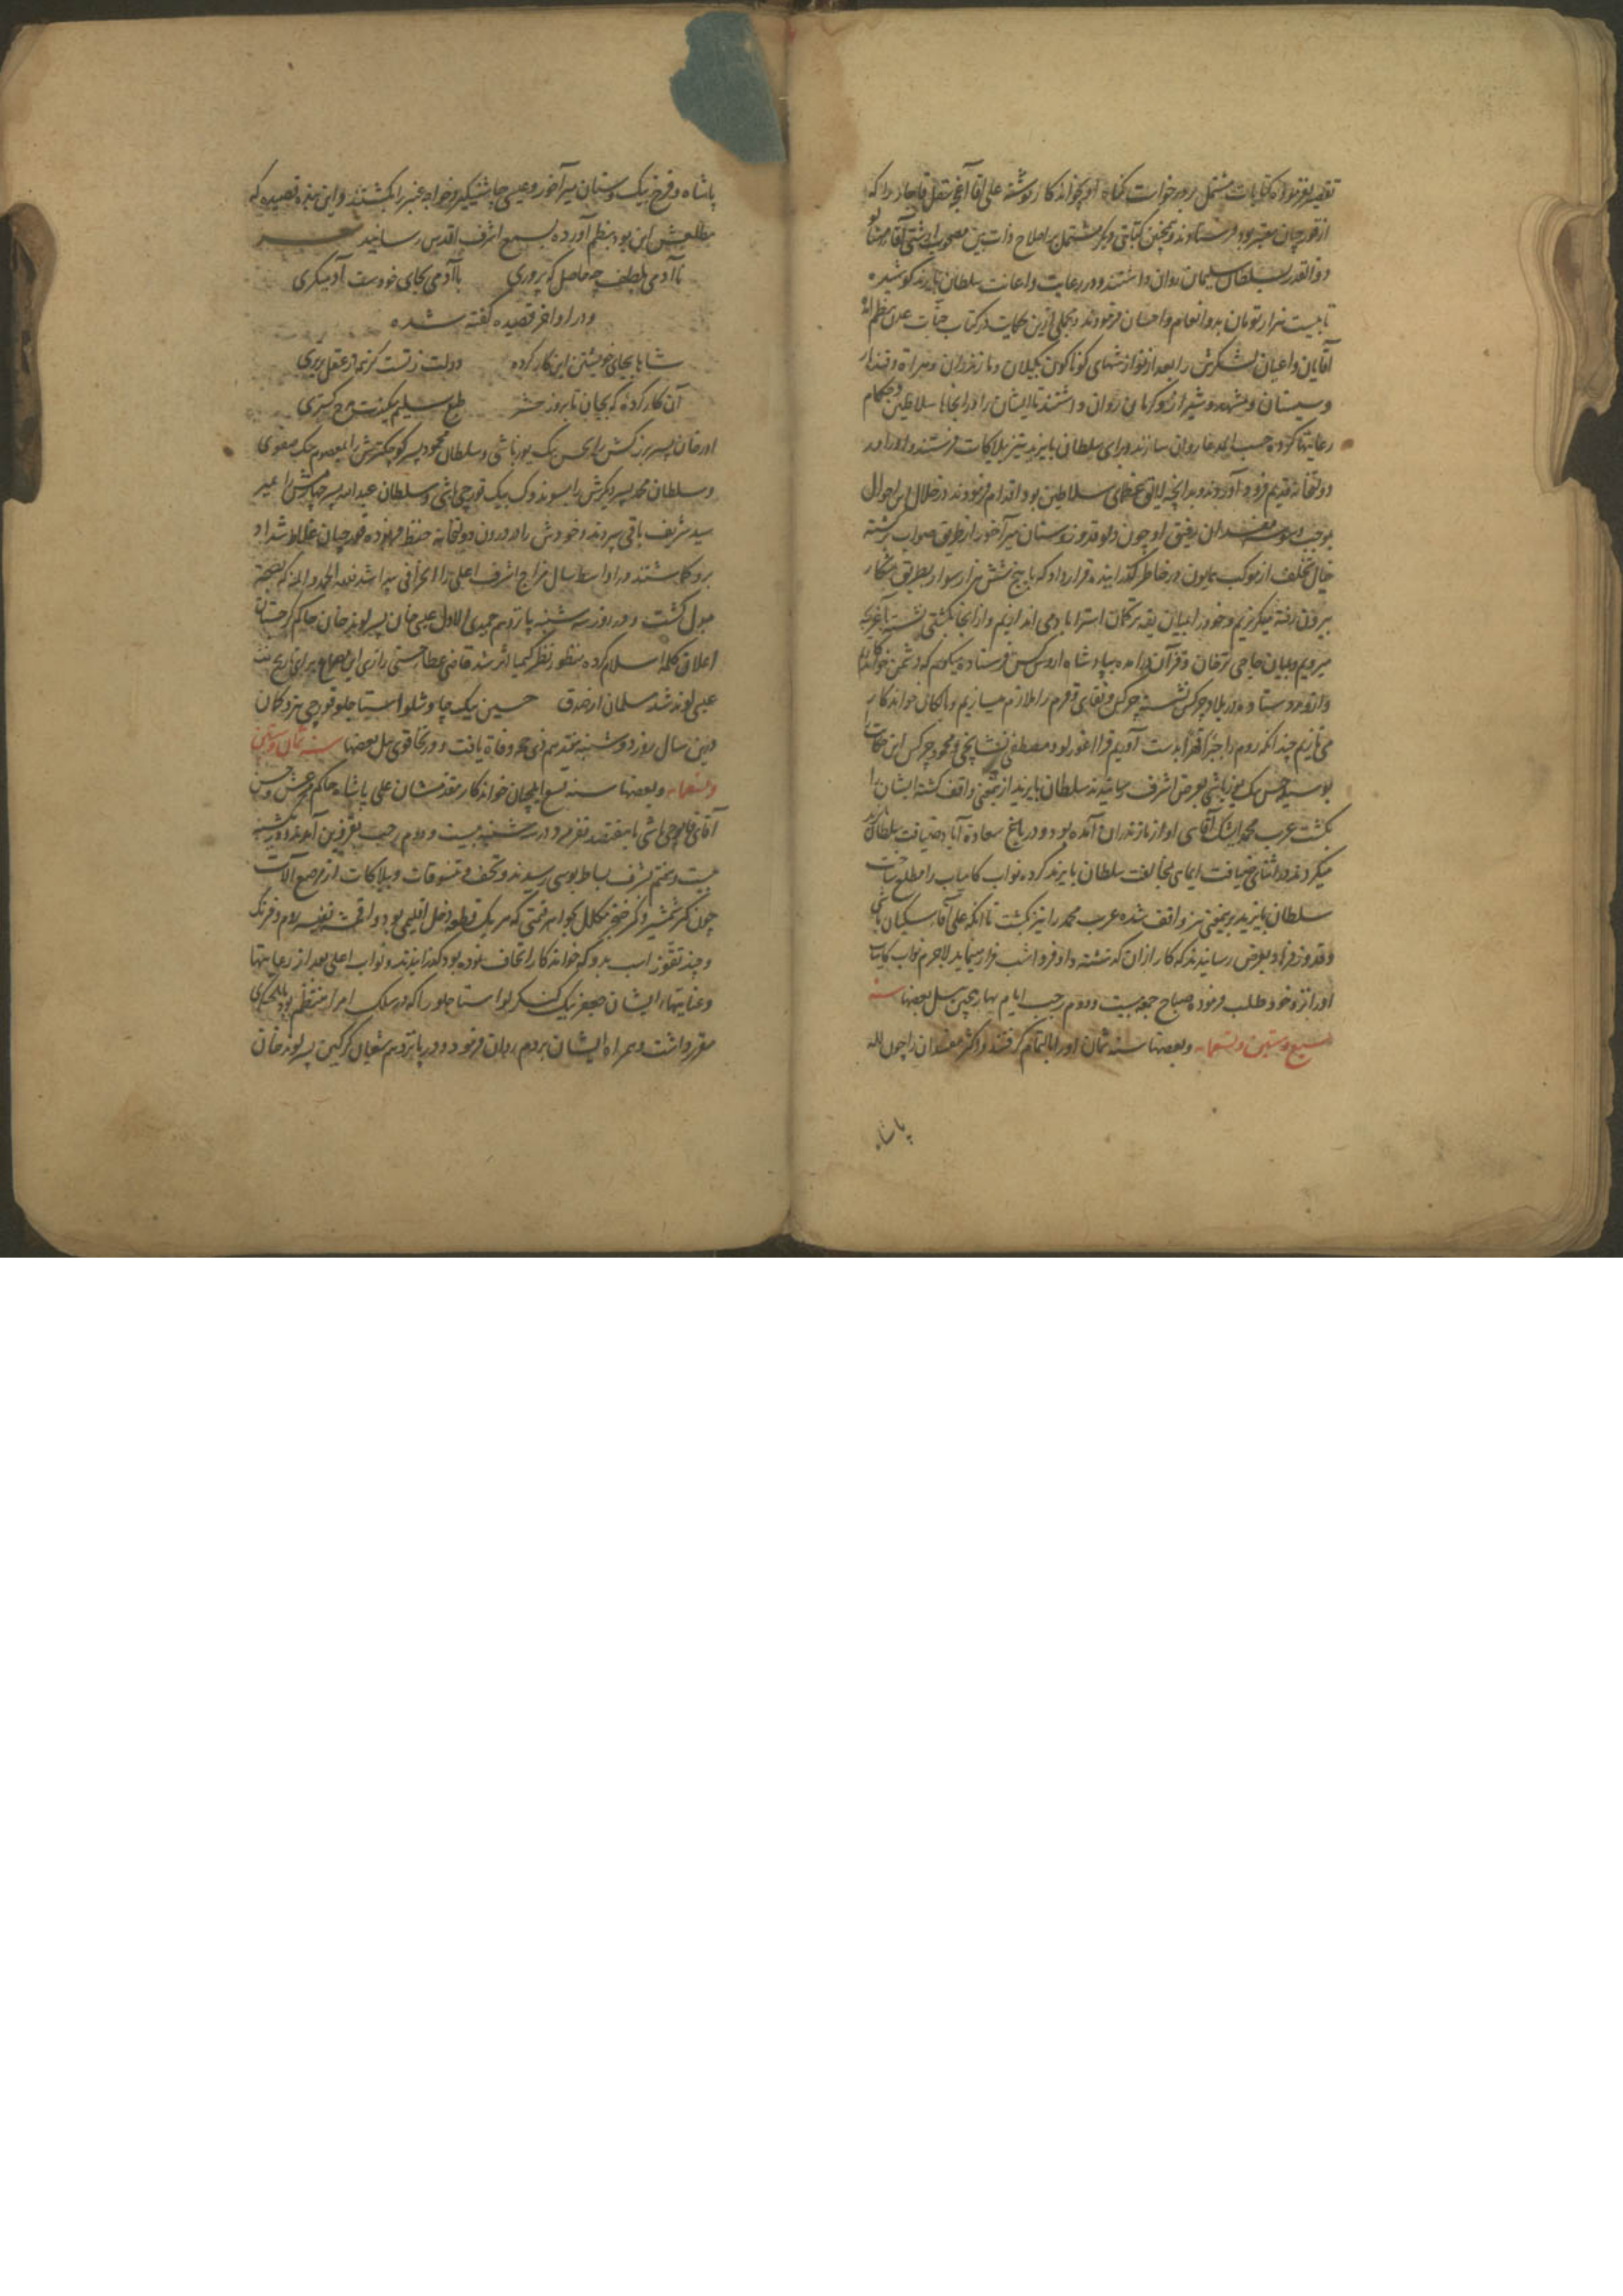 تقصیر فرموده کتابات مشتمل بر درخواست گناه او بخواندکار نوشته علی آقا آقچه سقل قاجار را که
از قورچیان معتبر بود فرستادند و همچنین کتابتی دیگر مشتمل بر اصلاح ذات بین مصحوب
ذوالقدر بسلطان سلیمان روان داشتند و در رعایت و اعانت سلطان بایزید کوشیده
تا بیست هزار تومان بدو انعام و احسان فرمودند و مجملی ازین حکایت در کتاب جنات عدن نظم
آقایان و اعیان لشکرش را بعد از نوازشهای گوناگون بگیلان و مازندران و هراة و قندهار
و سیستان و مشهد و شیراز و کرمان روان داشتند تا ایشان را در آنجاها سلاطین و حکام
رعایتها کرده حسب المدعا روان سازند و برای سلطان بایزید نیز بیلاکات فرستند و او را در
دولتخانه قدیم فرود آوردند و بدانچه لایق عظمای سلاطین بود اقدام فرمودند در خلال این احوال
بموجب مفسدان رفیق او چون دلو قدوز و سنان میرآخور از طریق صواب گشته
خیال تخلف از موکب همایون در خاطر گذرانیده قرار داد که با پنج شش هزار سوار بطریق شکار
بیرون رفته میگریزیم و خود را بمیان یقه ترکمان استراباد می اندازیم و از آنجا بکشتی نشسته
میرویم و بمیان حاجی ترخان و قزآن درآمده بپادشاه اروس کس فرستاده میگوییم که دشمن خواندکاریم
و در بلاد چرکس نشسته چرکس و نقای و قرم را ملازم میسازیم و با خواندکار
می بازیم چندانکه روم را جبرا قهرا بدست آوریم قرا اغورلو و مصطفی نشانچی و محمود چرکس این حکایت
بوسیله حسن بیک یوزباشی بعرض اشرف رسانیدند سلطان بایزید ازین معنی واقف گشته ایشان را
بکشت عرب محمد ایشک آقاسی او از مازندران آمده بود و در باغ سعادة آباد ضیافت سلطان
میکردند در اثنای ضیافت ایمای مخالفت سلطان بایزید کرده نواب کامیاب را مطلع ساخت
سلطان بایزید برین معنی نیز واقف شده عرب محمد را نیز بکشت تا آنکه علی آقا سکبان باشی
و قدوز فرهاد بعرض رسانیدند که کار از آن گذشته و او فردا شب فرار مینماید لاجرم نواب کامیاب
او را نزد خود طلب فرموده صباح جمعه بیست و دوم رجب ایام بهار پیچی ییل بعضها سنه
سبع و ستین و تسعمایه و بعضها سنه ثمان او را با لتمام گرفتند و اکثر مفسدان را چون لله
پاشاه
پاشاه و فرخ بیک و سنان میرآخور و عیسی چاشنیگیر و خواجه عنبر را بکشتند و این بنده قصیده که
مطلعش این بود بنظم آورده بسمع اشرف اقدس رسانید شعر
ناآدمی بلطف چه حاصل که پروری با آدمی بجای خودست آدمیگری
و در اواخر قصیده گفته شده
شاها بجای خویشتن این کار کرده دولت ز تست کز همه از عقل برتری
آن کار کرده که بجهان تا بروز حشر طبع سلیم میکندت مدح گستری
اورخان پسر بزرگش را بحسن بیک یوزباشی و سلطان محمود پسر کوچکترش را بمعصوم بیک صفوی
و سلطان محمد پسر دیگرش را بسوندوک بیک قورچی باشی و سلطان عبدالله پسر چهارمش را بمیر
سید شریف باقی سپردند و خودش را در درون دولتخانه حفظ فرموده قورچیان غلاظ شداد
برو گماشتند در اواسط سال مزاج اشرف اعلی را انحرافی پیدا شد فلله الحمد و المنه که بصحة
مبدل گشت و در روز سه شنبه پانزدهم جمیدی الاول عیسی خان پسر لوند خان حاکم گرجستان
اعلان کلمه اسلام کرده منظور نظر کیمیا اثر شد قاضی عطاء حسنی رازی این مصراع برای تاریخ
عیسی لوند شد مسلمان از صدق حسین بیک چاوشلو استاجلو قورچی تیر و کمان
درین سال روز دوشنبه هفتدهم ذی حجه وفاة یافت و در تخاقوی ییل بعضها سنه ثمان و ستین
و تسعمایه و بعضها سنه تسع ایلچیان خواندکار مقدمشان علی پاشاه حاکم مرعش و حسن
آقای قاپوچی باشی با هفتصد نفر مرد در سه شنبه بیست و دوم رجب بقزوین آمدند و در شنبه
بیست و هفتم بشرف بساط بوسی رسیدند و تحف و تنسوقات و بیلاکات از مرصع آلات
چون کمر شمشیر و کمر خنجر مکلل بجواهر قیمتی که هر یک قطعه دخل اقلیمی بود و اقمشه نفیسه روم و فرنگ
و چند تقوز اسب بدو که خواندکار اتحاف نموده بود گذرانیدند و نواب اعلی بعد از رعایتها
و عنایتها، ایشان جعفر بیک کنگرلو استاجلو را که در سلک امرا منتظم بود بایلچیگری
مقرر داشت و همراه ایشان بروم روان فرمود و در پانزدهم شعبان گرگین پسر لوند خان